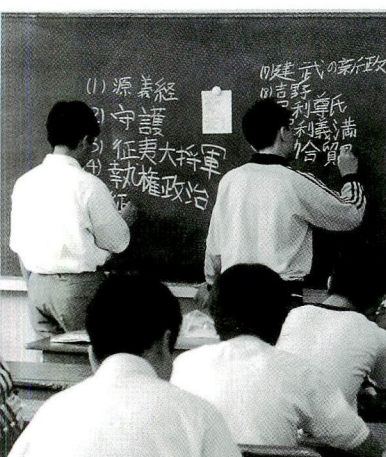 (1) 源義経
2) 守護
3) 征夷大将軍
4) 執権政治
征
(7)建武の新政
(8)吉野
利尊氏
利義満
合貿